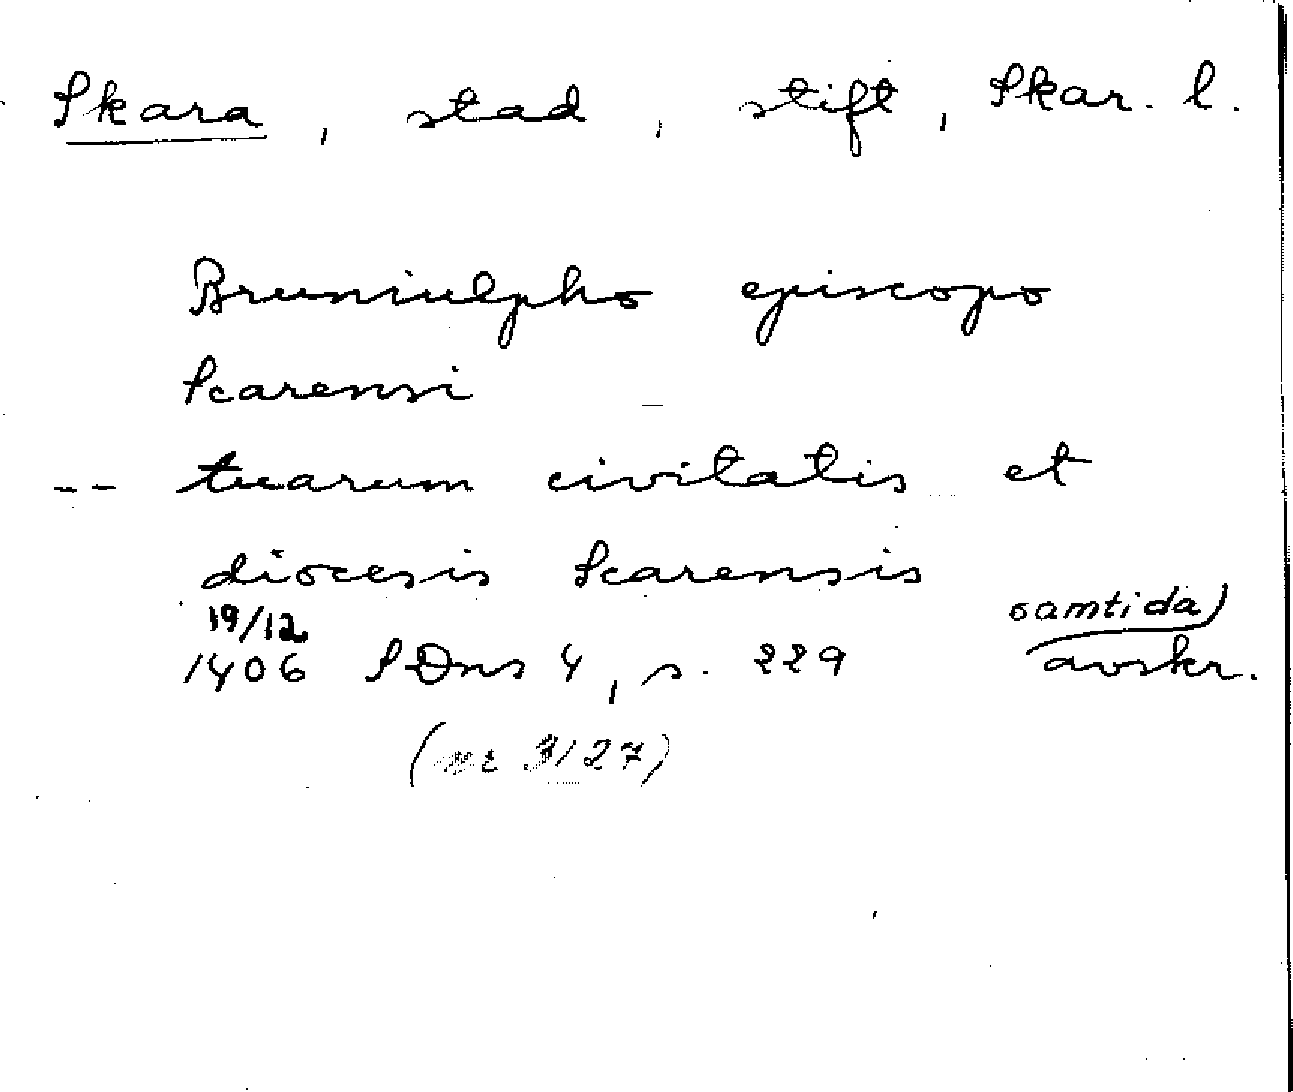 Skara, stad, stift, Skar. l.
Bruniulpho episcopo
Scarensi
-- tuarum civitatis et
diocesis Scarensis
19/12
1406 SDns 4, s. 229
samtida)
avskr.
(nr 3/27)